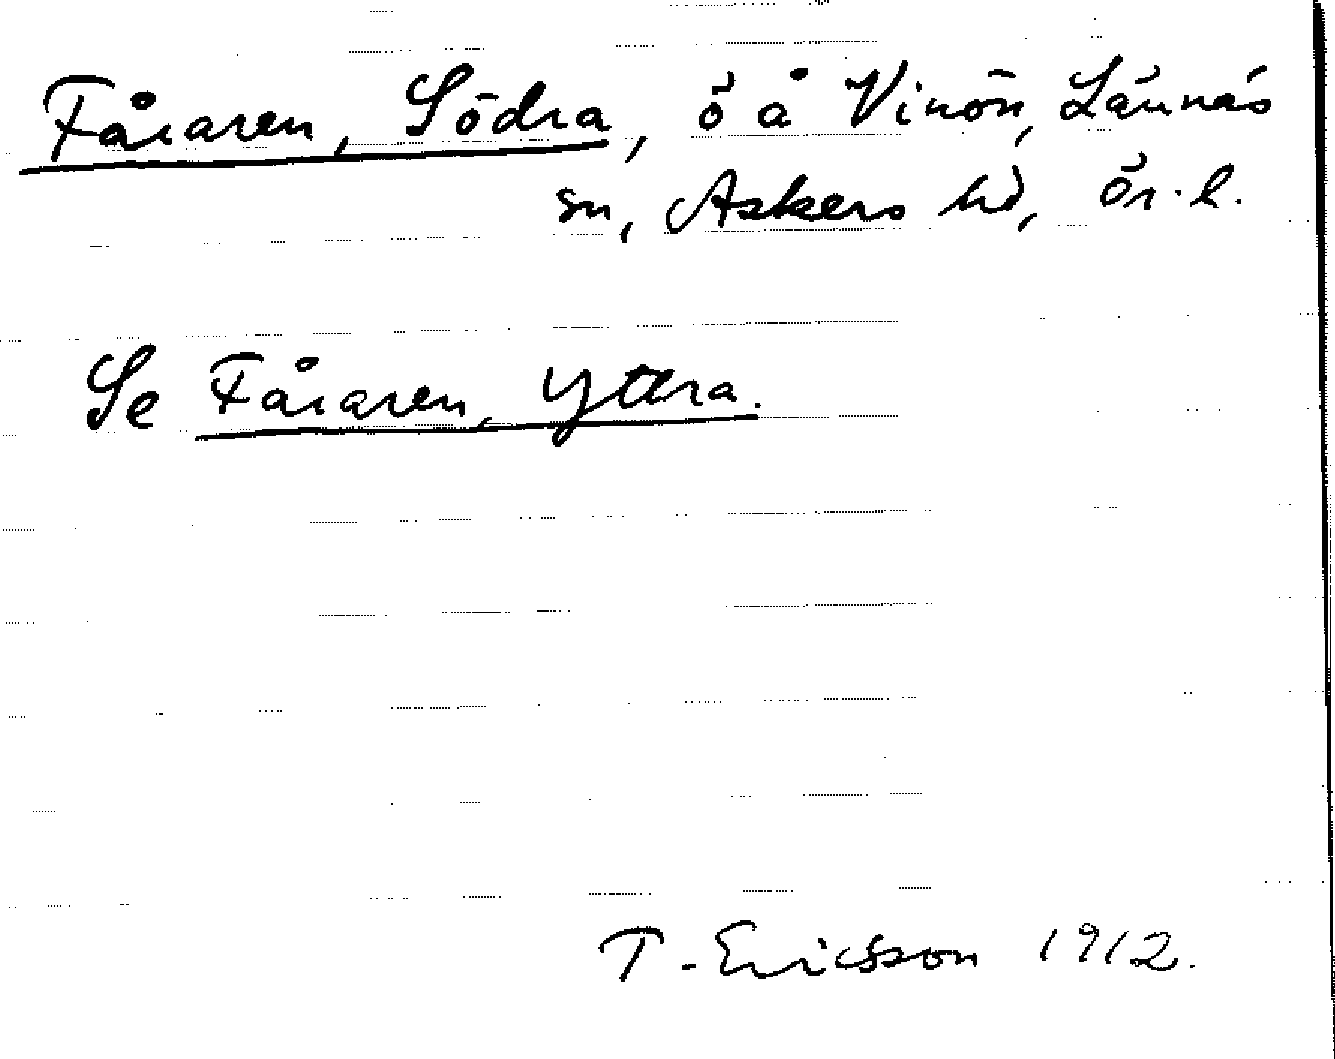 Fåraren, Södra, ö å Vinön, Lännäs
sn, Askers hd, Ör. l.
Se Fåraren, Yttra.
T. Ericsson 1912.